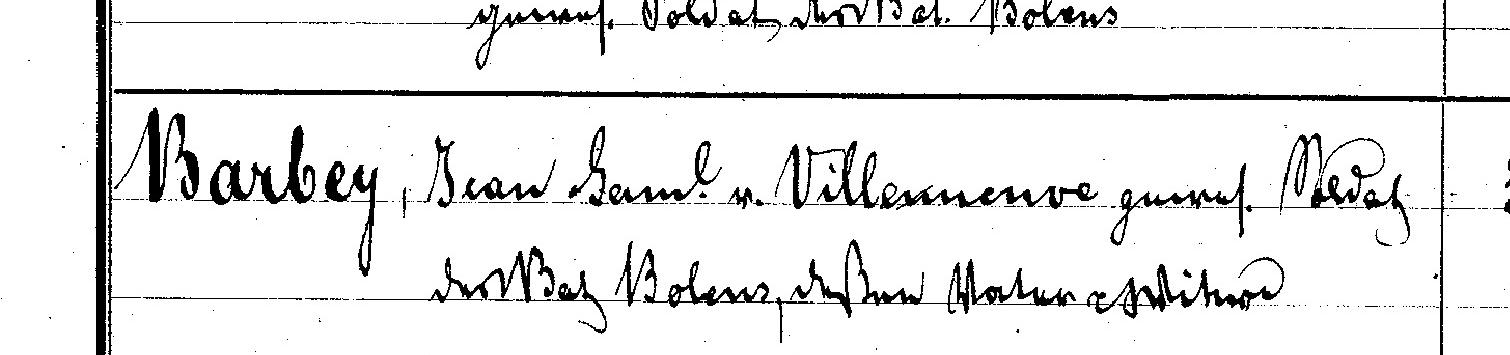 gewes. Soldat, des Bat. Bolens
Barbey, Jean Saml. v. Villeneuve gewes. Soldat
des Bat. Bolens, deßen Vater & Witwe